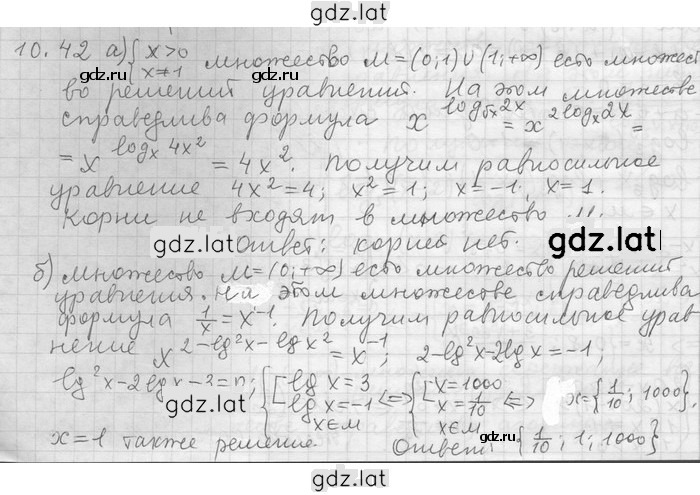 gdz.lat
10.42 а) { x>0 x≠1 множество M=(0;1)∪(1;+∞) есть множест
во решений уравнения. На этом множестве
справедлива формула x^(log_√x 2x) = x^(2log_x 2x) =
= x^(log_x 4x²) = 4x². Получим равносильное
уравнение 4x²=4; x²=1; x=-1, x=1.
Корни не входят в множество M.
Ответ: корней нет.
gdz.lat
gdz.lat
б) множество M=(0;+∞) есть множество решений
уравнения. На этом множестве справедлива
формула 1/x = x^-1. Получим равносильное урав
нение x^(2-lg²x-lgx²) = x^-1; 2-lg²x-2lgx=-1;
lg²x-2lgx-3=0; { [ lgx=3 lgx=-1 x∈M <=> { [ x=1000 x=1/10 x∈M <=> x={1/10; 1000}.
x=1 также решение. Ответ: {1/10; 1; 1000}
gdz.lat